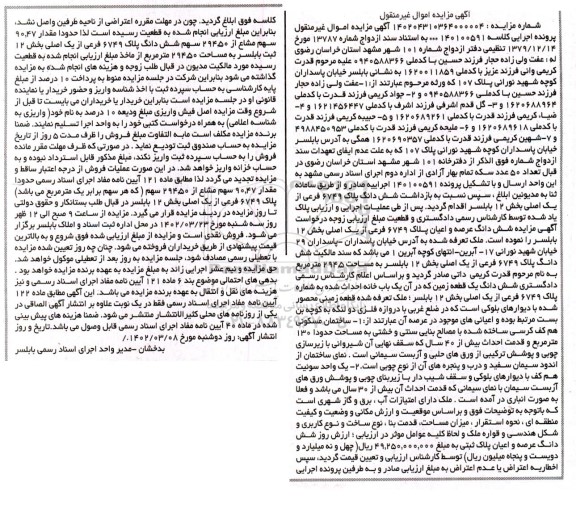 آگهی مزایده اموال غیرمنقول
شماره مزایده : ۱۴۰۲۰۴۳۰۱۰۳۶۴۰۰۰۰۰۴ : آگهی مزایده اموال غیرمنقول
پرونده اجرایی کلاسه ۱۴۰۱۰۰۵۹۱ ... به استناد سند ازدواج شماره ۱۳۷۸۷ مورخ
۱۳۷۹/۱۲/۱۴ تنظیمی دفتر ازدواج شماره ۱۰۱ شهر مشهد استان خراسان رضوی
له : عفت ولی زاده حجار فرزند حسین با کدملی ۰۹۴۰۵۸۸۳۶۶ علیه مرحوم قدرت
کریمی وانی فرزند عزیز با کدملی ۱۶۲۰۰۱۱۸۵۹ به نشانی بابلسر خیابان پاسداران
کوچه شهید نورانی پلاک ۱۰۷ که ورثه مرحوم عبارتند از :۱-عفت ولی زاده حجار
فرزند حسین با کدملی ۰۹۴۰۵۸۸۳۶۶ و ۲- جواد کریمی فرزند قدرت با کدملی
۱۶۲۰۶۸۸۹۶۴ و ۳- گل قدم اشرفی فرزند اشرف با کدملی ۱۶۲۱۴۵۶۴۴۷ و ۴-
ضیاء کریمی فرزند قدرت با کدملی ۱۶۲۰۶۸۹۲۶۱ و ۵- حبیبه کریمی فرزند قدرت
با کدملی ۱۶۲۰۶۸۹۶۱۸ و ۶- ملیحه کریمی فرزند قدرت با کدملی ۴۹۸۸۴۵۰۹۵۳
و ۷-شهین کریمی فرزند قدرت با کدملی ۱۶۲۰۶۹۰۳۵۷ همگی به آدرس بابلسر
خیابان پاسداران کوچه شهید نورانی پلاک ۱۰۷ که به علت عدم ایفای تعهدات سند
ازدواج شماره فوق الذکر از دفترخانه ۱۰۱ شهر مشهد استان خراسان رضوی در
قبال تعداد ۵۰ عدد سکه تمام بهار آزادی از اداره دوم اجرای اسناد رسمی مشهد به
این واحد ارسال و با تشکیل پرونده ۱۴۰۱۰۰۵۹۱ اجراییه صادر و از طریق سامانه
ثنا به مدیونین ابلاغ ، سپس نسبت به بازداشت شش دانگ پلاک ۶۷۴۹ فرعی از
یک اصلی بخش ۱۲ بابلسر اقدام گردید. پس از طی عملیات اجرایی و ارزیابی پلاک
یاد شده توسط کارشناس رسمی دادگستری و قطعیت مبلغ ارزیابی زوجه درخواست
آگهی مزایده شش دانگ عرصه و اعیان پلاک ۶۷۴۹ فرعی از یک اصلی بخش ۱۲
بابلسر را نموده است. ملک تعرفه شده به آدرس خیابان پاسداران -پاسداران ۲۹
خیابان شهید نورانی ۱۷- آبرین-انتهای کوچه آبرین ۱ می باشد که سند مالکیت شش
دانگ پلاک ۶۷۴۹ فرعی از یک اصلی بخش ۱۲ بابلسر به مساحت ۲۹۴۵ مترمربع
به نام مرحوم قدرت کریمی دانی صادر گردید و براساس اعلام کارشناس رسمی
دادگستری شش دانگ یک قطعه زمین که در آن یک باب خانه احداث شده به شماره
پلاک ۶۷۴۹ فرعی از یک اصلی بخش ۱۲ بابلسر : ملک تعرفه شده قطعه زمینی محصور
شده با دیوارهای بلوکی است که در ضلع غربی با دروازه فلزی دو لنگه به کوچه بن
بست مرتبط بوده و اعیانی های موجود در عرصه آن عبارتند از:۱- ساختمان مسکونی
هم کف کرسی ساخته شده با مصالح بنایی سنتی و خشتی به مساحت حدودا ۱۳۰
مترمربع و قدمت احداث بیش از ۴۰ سال که سقف نهایی آن شیروانی با زیرسازی
چوبی و پوشش ترکیبی از ورق های حلبی و آزبست سیمانی است . نمای ساختمان از
اندود سیمان سفید و درب و پنجره های آن از نوع چوبی است.۲- یک واحد سوئیت
هم کف با دیوارهای بلوکی و سقف شیب دار با زیربنای چوبی و پوشش ورق های
آزبست سیمان با نمای سیمانی که قدمت احداث آن بیش از ۳۰ سال می باشد و فعلا
به صورت انباری در آمده است . ملک دارای امتیازات آب ، برق و گاز شهری است
که باتوجه به توضیحات فوق و براساس موقعیت و ارزش مکانی وضعیت و کیفیت
منطقه ای ، نحوه استقرار ، میزان مساحت، قدمت بنا ، نوع ساخت و نوع کاربری و
شکل هندسی و قواره ملک و لحاظ کلیه عوامل موثر در ارزیابی ؛ ارزش روز شش
دانگ عرصه و اعیان پلاک ثبتی به مبلغ ۴۹,۲۵۰,۰۰۰,۰۰۰ ریال( چهل و نه میلیارد و
دویست و پنجاه میلیون ریال) توسط کارشناس ارزیابی و تعیین قیمت گردید، سپس
اخطاریه اعتراض یا عدم اعتراض به مبلغ ارزیابی صادر و به طرفین پرونده اجرایی
کلاسه فوق ابلاغ گردید. چون در مهلت مقرره اعتراضی از ناحیه طرفین واصل نشد،
بنابراین مبلغ ارزیابی انجام شده به قطعیت رسیده است لذا حدودا مقدار ۹۰.۴۷
سهم مشاع از ۲۹۴۵۰ سهم شش دانگ پلاک ۶۷۴۹ فرعی از یک اصلی بخش ۱۲
ثبت بابلسر به مساحت ۲۹۴۵۰ مترمربع از ماخذ مبلغ ارزیابی انجام شده به قطعیت
رسیده مورد مالکیت مدیون در قبال طلب زوجه و هزینه های انجام شده به مزایده
گذاشته می شود بنابراین شرکت در جلسه مزایده منوط به پرداخت ۱۰ درصد از مبلغ
پایه کارشناسی به حساب سپرده ثبت با اخذ شناسه واریز و حضور خریدار یا نماینده
قانونی او در جلسه مزایده است بنابراین خریدار یا خریداران می بایست تا قبل از
شروع وقت مزایده اصل فیش واریزی مبلغ ودیعه ۱۰ درصد به نام خود( واریزی به
شناسه اعلامی) به همراه درخواست کتبی خود را به واحد اجرا تسلیم نمایند. ضمنا
برنده مزایده مکلف است مابه التفاوت مبلغ فروش را ظرف مدت ۵ روز از تاریخ
مزایده به حساب صندوق ثبت تودیع نماید . در صورتی که ظرف مهلت مقرر مانده
فروش را به حساب سپرده ثبت واریز نکند، مبلغ مذکور قابل استرداد نبوده و به
حساب خزانه واریز خواهد شد. در این صورت عملیات فروش از درجه اعتبار ساقط و
مزایده تجدید می گردد لذا مطابق ماده ۱۲۱ آیین نامه مفاد اجرای اسناد رسمی حدودا
مقدار ۹۰.۴۷ سهم مشاع از ۲۹۴۵۰ سهم ( که هر سهم برابر یک مترمربع می باشد)
پلاک ۶۷۴۹ فرعی از یک اصلی بخش ۱۲ بابلسر در قبال طلب بستانکار و حقوق دولتی
تا روز مزایده در ردیف مزایده قرار می گیرد. مزایده از ساعت ۹ صبح الی ۱۲ ظهر
روز سه شنبه مورخ ۱۴۰۲/۰۳/۲۳ در محل اداره ثبت اسناد و املاک بابلسر برگزار
می شود. فروش نقدی است و مزایده از مبلغ ارزیابی شده فوق شروع و به بالاترین
قیمت پیشنهادی از طریق خریداران فروخته می شود. چنان چه روز تعیین شده مزایده
با تعطیلی رسمی مصادف شود، جلسه مزایده به روز بعد از تعطیلی موکول خواهد شد.
حق مزایده و نیم عشر اجرایی زائد به مبلغ مزایده به عهده برنده مزایده خواهد بود .
بدهی های احتمالی موضوع بند ۶ ماده ۱۲۱ آیین نامه مفاد اجرای اسناد رسمی و نیز
هزینه های نقل و انتقال به عهده برنده مزایده می باشد. این آگهی مطابق ماده ۱۲۲
آیین نامه مفاد اجرای اسناد رسمی فقط در یک نوبت علاوه بر انتشار آگهی الصاقی در
یکی از روزنامه های محلی کثیرالانتشار منتشر می شود. ضمنا هزینه های پیش بینی
شده در ماده ۴۰ آیین نامه مفاد اجرای اسناد رسمی قابل وصول می باشد.تاریخ و روز
انتشار آگهی: روز دوشنبه مورخ ۱۴۰۲/۰۳/۰۸.
بدخشان -مدیر واحد اجرای اسناد رسمی بابلسر